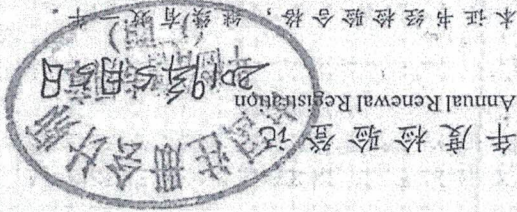 年度检验登记
Annual Renewal Registration
本证书经检验合格，继续有效一年。
注册会计师